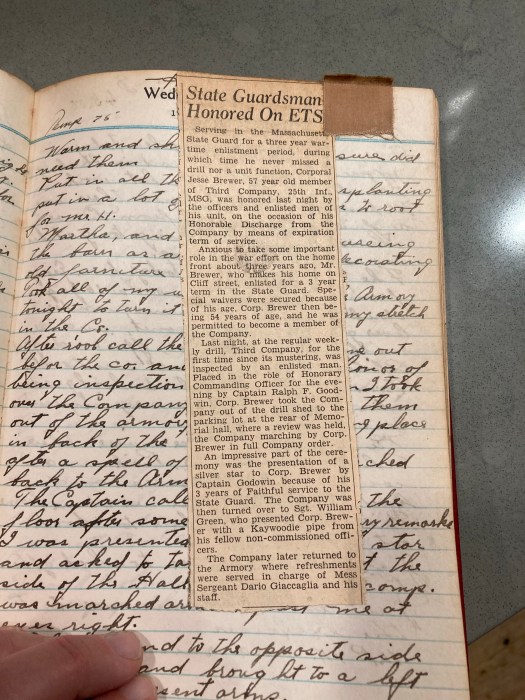 Wed
State Guardsman
Honored On ETS
Serving in the Massachusetts
State Guard for a three year war-
time enlistment period, during
which time he never missed a
drill nor a unit function, Corporal
Jesse Brewer, 57 year old member
of Third Company, 25th Inf.,
MSG, was honored last night by
the officers and enlisted men of
his unit, on the occasion of his
Honorable Discharge from the
Company by means of expiration
term of service.
Anxious to take some important
role in the war effort on the home
front about three years ago, Mr.
Brewer, who makes his home on
Cliff street, enlisted for a 3 year
term in the State Guard. Spe-
cial waivers were secured because
of his age, Corp. Brewer then be-
ing 54 years of age, and he was
permitted to become a member of
the Company.
Last night, at the regular week-
ly drill, Third Company, for the
first time since its mustering, was
inspected by an enlisted man.
Placed in the role of Honorary
Commanding Officer for the eve-
ning by Captain Ralph F. Good-
win, Corp. Brewer took the Com-
pany out of the drill shed to the
parking lot at the rear of Memo-
rial hall, where a review was held,
the Company marching by Corp.
Brewer in full Company order.
An impressive part of the cere-
mony was the presentation of a
silver star to Corp. Brewer by
Captain Godowin because of his
3 years of Faithful service to the
State Guard. The Company was
then turned over to Sgt. William
Green, who presented Corp. Brew-
er with a Kaywoodie pipe from
his fellow non-commissioned offi-
cers.
The Company later returned to
the Armory where refreshments
were served in charge of Mess
Sergeant Dario Giaccaglia and his
staff.
Warm and sh sure did
need them
Put in all th splanting
out in a lot a to root
for me H.
Martha, and
the bars on a decorating
old furniture
Took all of my Armory
tonight to turn it my stretch
in the Co.
After roll call the me out
befor the co. and honor of
being inspection I took
over the Company them
out of the armory place
in back of the
after a spell of ched
back to the Arm
The Captain call the
floor after some ry remarks
I was presented star
and asked to ta the
side of the Hall comp.
was marched me at
eyes right.
nd to the opposite side
and brought to a left
sent arms.